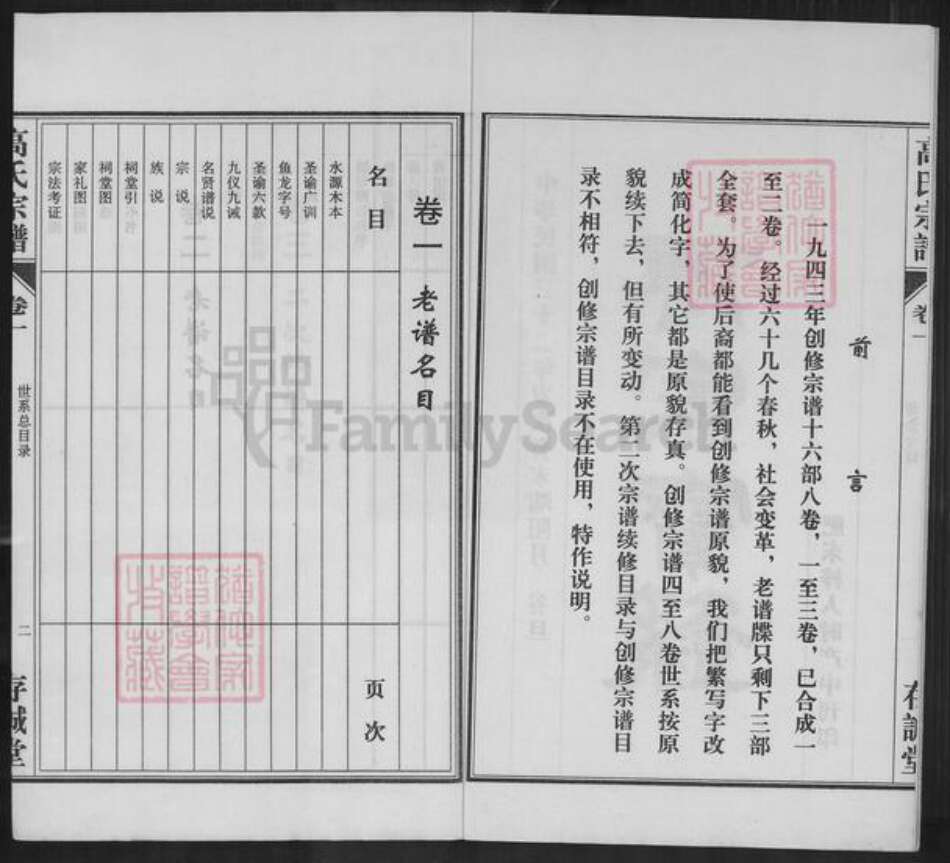 高氏宗谱
卷一
存诚堂
前言
一九四三年创修宗谱十六部八卷，一至三卷，已合成一
至二卷。经过六十几个春秋，社会变革，老谱牒只剩下三部
全套。为了使后裔都能看到创修宗谱原貌，我们把繁写字改
成简化字，其它都是原貌存真。创修宗谱四至八卷世系按原
貌续下去，但有所变动。第二次宗谱续修目录与创修宗谱目
录不相符，创修宗谱目录不在使用，特作说明。
卷一 老谱名目
名目 页次
水源木本
圣谕广训
鱼龙字号
圣谕六款
九仪九诫
名贤谱说
宗说
族说
祠堂引
祠堂图
家礼图
宗法考证
高氏宗谱
卷一
世系总目录
二
存诚堂
FamilySearch